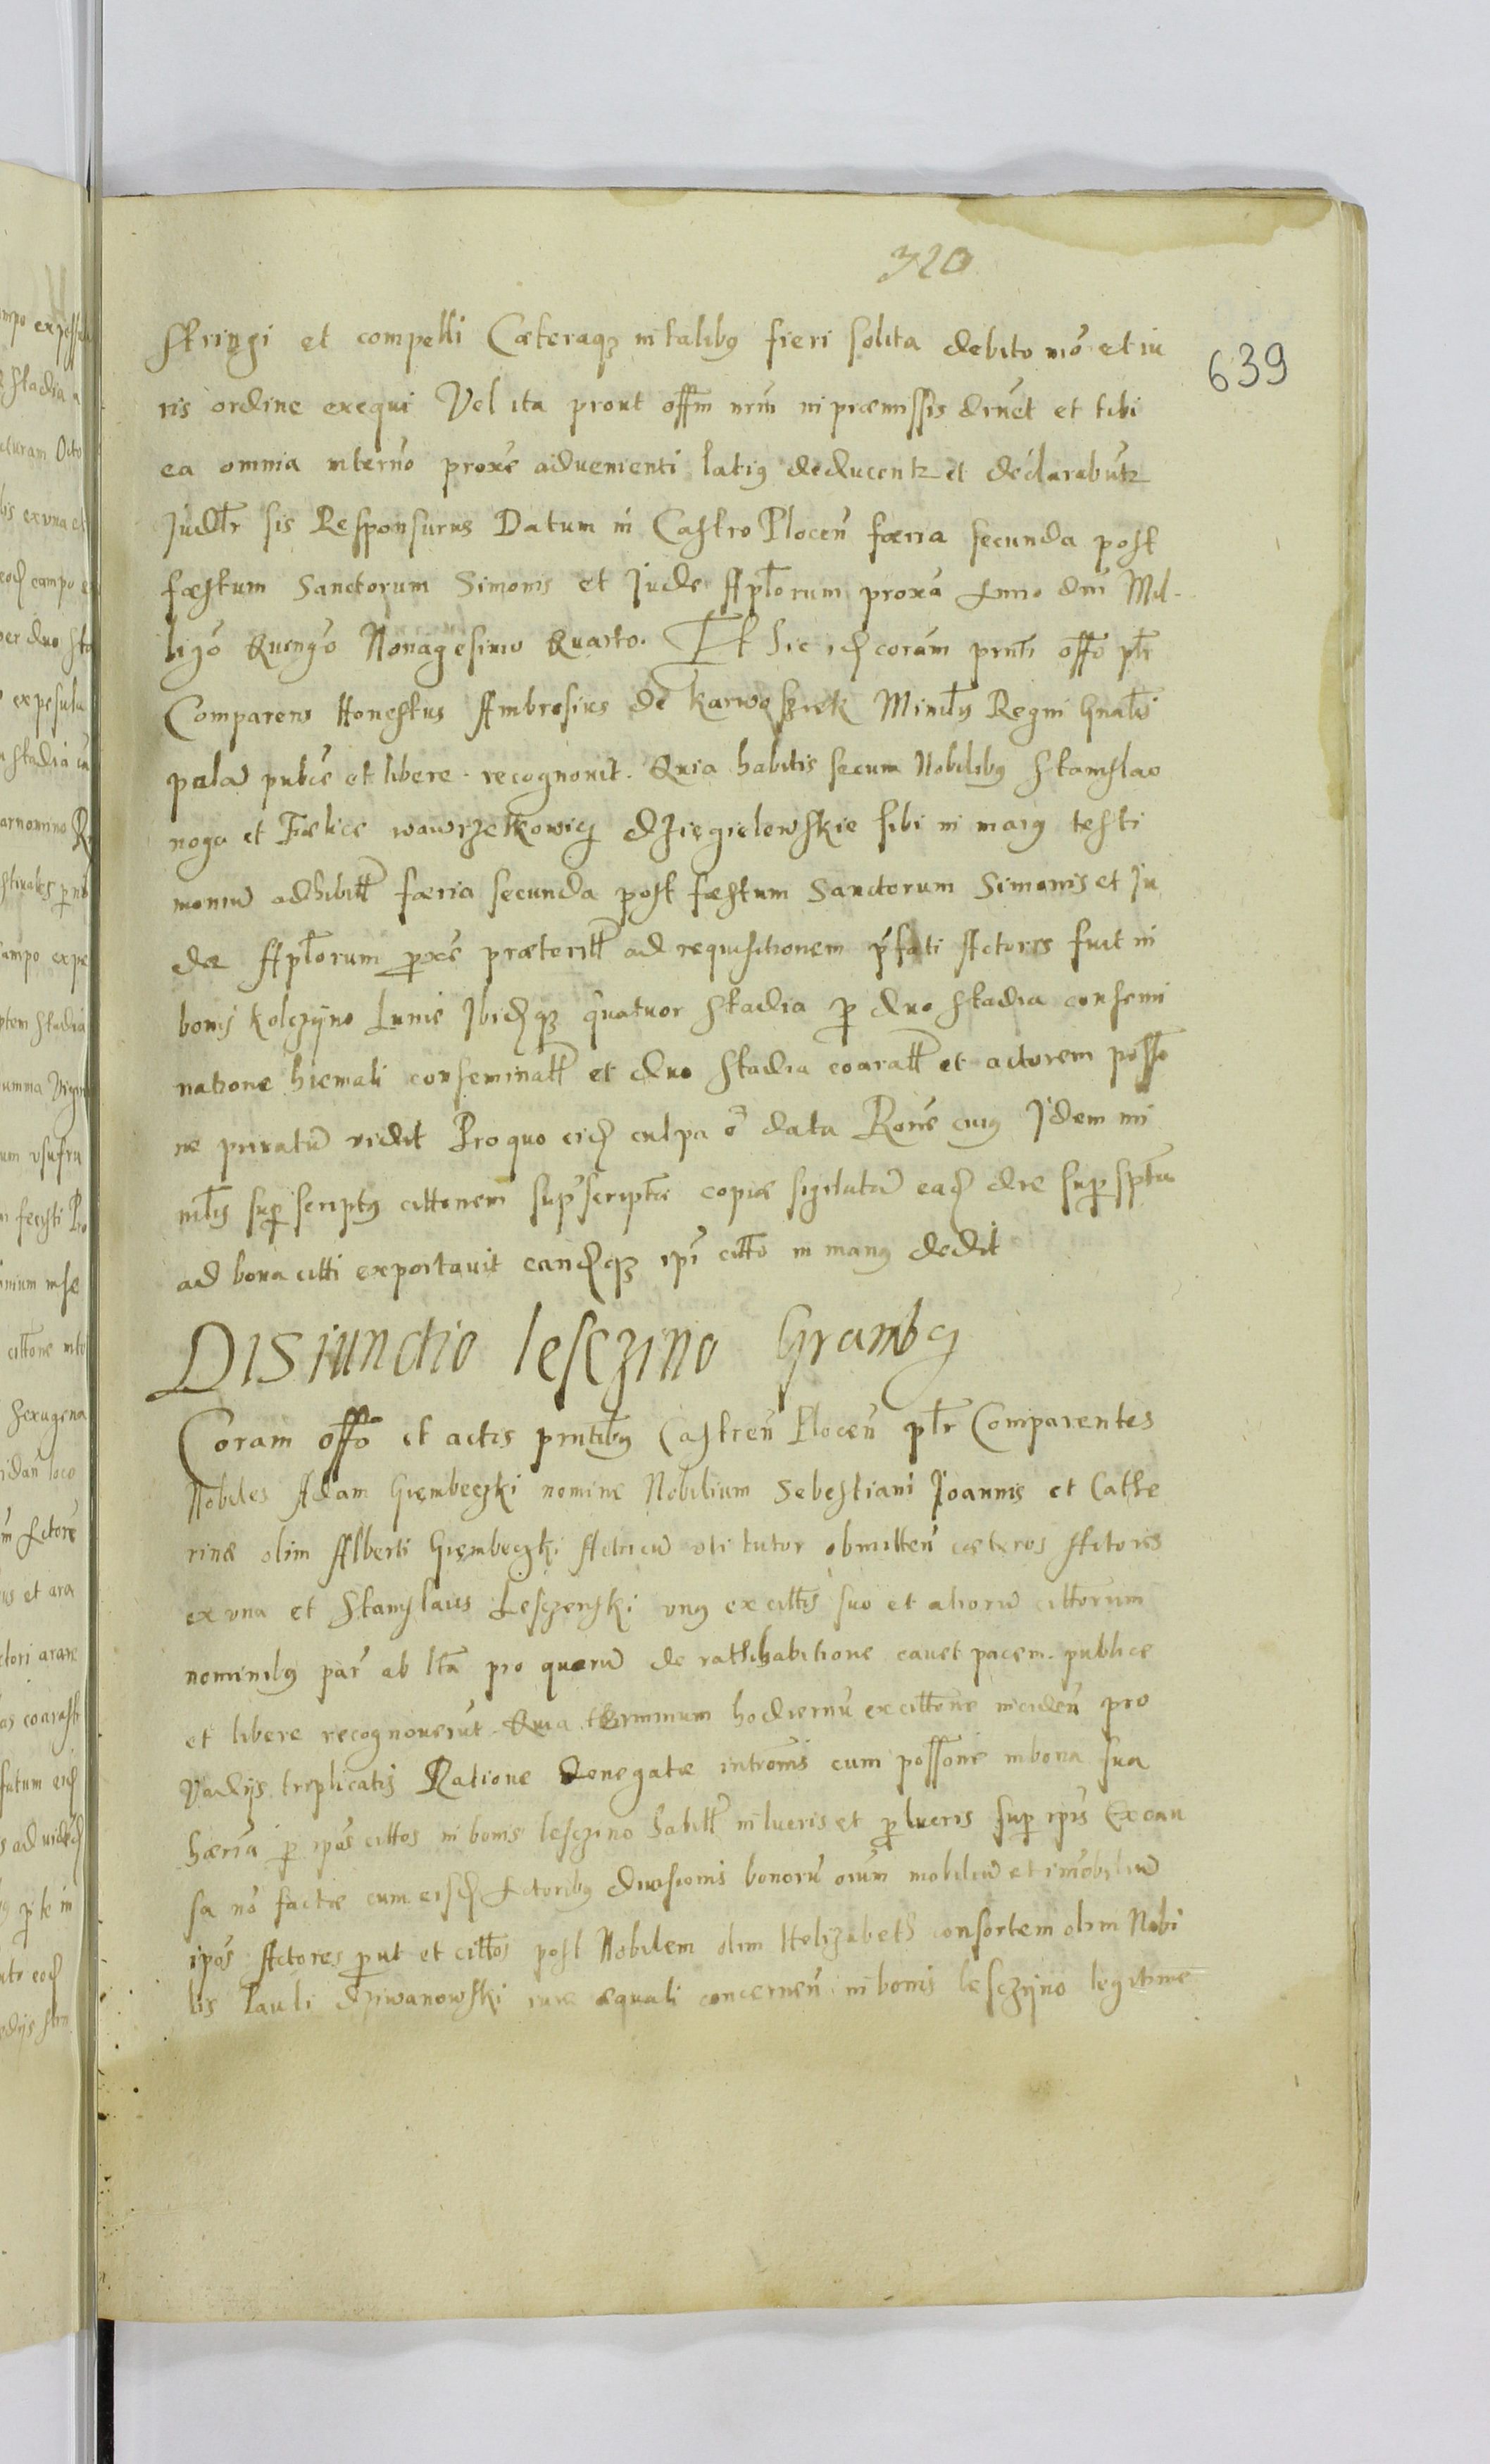 320
639
stringi et compelli Cæteraqꝫ in talibꝰ fieri solita debito mō et iu
ris ordine exequi Vel ita prout offm nrm in præmissis dru̅et et tibi
ea omnia in termo proxe aduenienti latiꝰ deducentr et declarabutr
Judltr sis Responsurus Datum in Castro Plocen̄ færia secunda post
fæstum Sanctorum Simonis et Jude Aplorum proxa Anno dni Mil-
lizo Quingo Nonagesimo Quarto. Et sic id coram prnti offo pltr
Comparens Honestus Ambrosius de Karwosziek Minilis Regni Gnalis
palā publce et libere recognouit. Quia habitis secum Nobilibꝰ Stanislao
noga et Fælice wawrzetkowicz dziegielewskie sibi in maiꝰ testi
moniū adhibitt færia secunda post fæstum Sanctorum Simonis et Ju
dæ Aplorum proxe præteritt ad requisitionem pfati Actoris fuit in
bonis Kolczyno Lunie Ibidqꝫ quatuor stadia p duo stadia consemi
natione hiemali conseminatt et duo stadia coaratt et actorem posso
ne priuatū vidit Pro quo eid culpa ē data Rone cuiꝰ Idem mi
nilis supscriptꝰ cittonem supscriptæ copiæ sigilatā ead die supscpta
ad bona citti exportauit eandqꝫ ipi citto in manꝰ dedit
Disiunctio lesczino Grambcz
Coram offo et actis prntibꝰ Castren̄ Plocen̄ pltr Comparentes
Nobiles Adam Giembeczki nomine Nobilium Sebestiani Joannis et Cathe
rinæ olim Alberti Giembeczki Actricū vti tutor obmitten̄ cæteros Actores
ex vna et Stanislaus Lesczenski vnꝰ ex cittis suo et aliorū cittorum
nominibꝰ par ab ltra pro quorū de rathihabitione cauet pacem publice
et libere recognouerūt Quia terminum hodiernū ex cittone inciden̄ pro
Vadijs triplicatis Ratione denegatæ intromis cum possone in bona sua
hæria p ipos cittos in bonis lesczino habitt in lucris et p lucris sup ipis Ex cau
sa no factæ cum eisd Actoribꝰ diuisionis bonorū oium mobiliū et imobiliū
ipos Actores put et cittos post Nobilem olim Helizabeth consortem olim Nobi
lis Pauli dziwanowski iure æquali concernen̄ in bonis lesczyno legitime